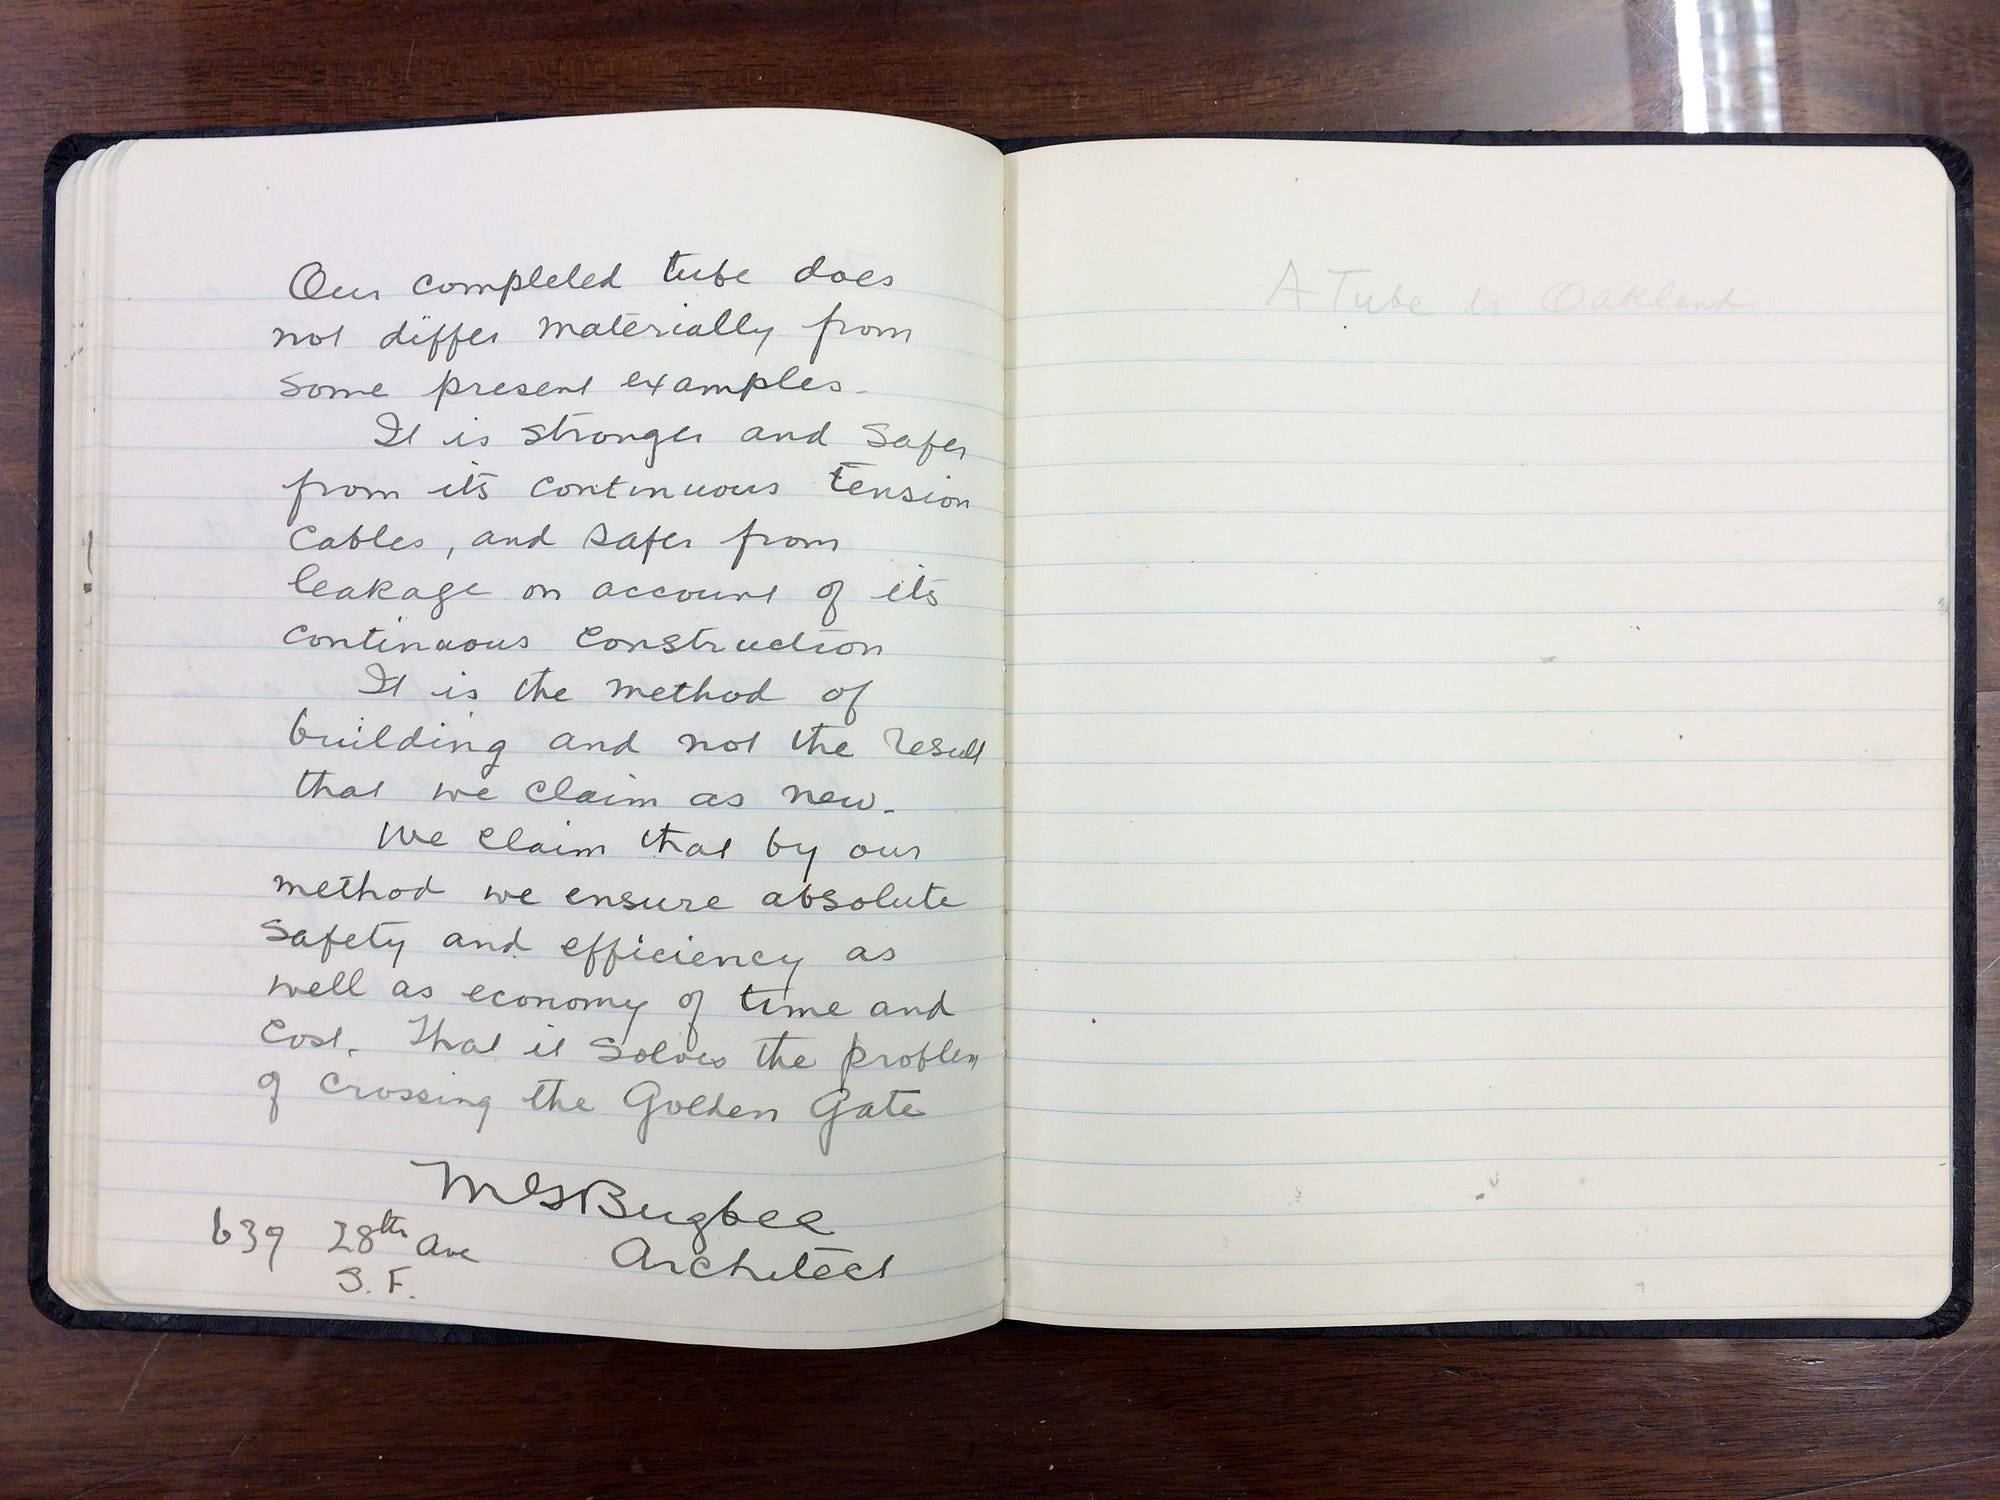 Our completed tube does
not differ materially from
some present examples.
It is stronger and safer
from its continuous tension
cables, and safer from
leakage on account of its
continuous construction
It is the method of
building and not the result
that we claim as new.
We claim that by our
method we ensure absolute
safety and efficiency as
well as economy of time and
cost. That it solves the problem
of crossing the Golden Gate
M G Bugbee
Architect
639 28th Ave
S. F.
A Tube to Oakland